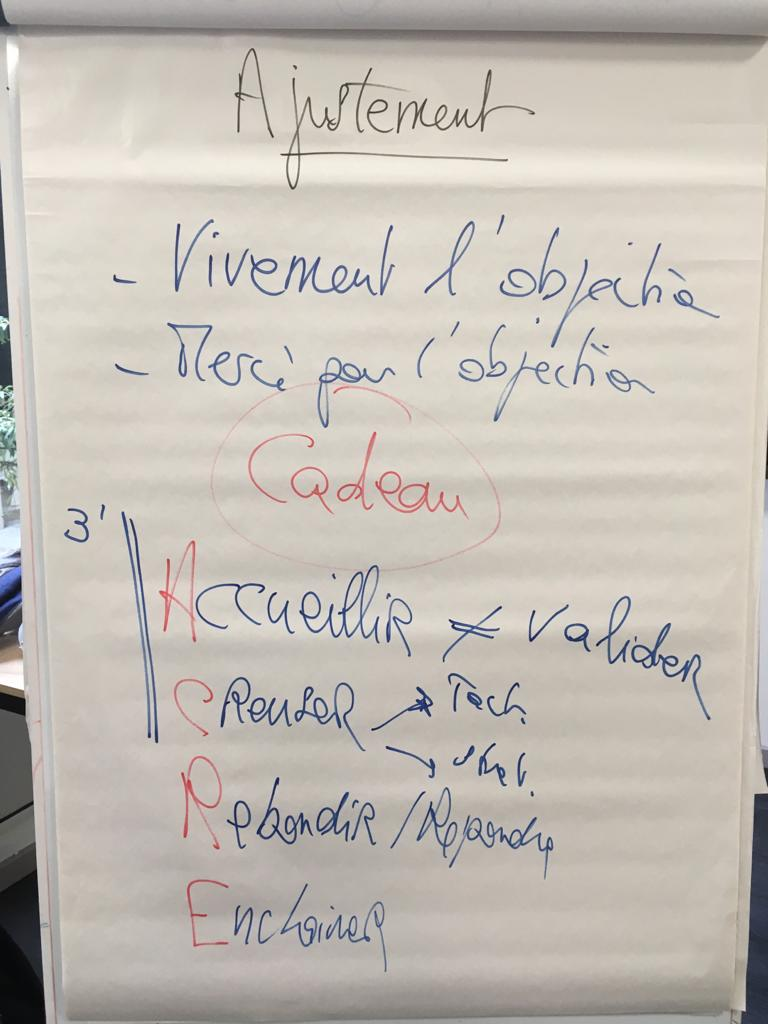 Ajustement
- Vivement l'objection
- Merci pour l'objection
Cadeau
3'
Accueillir ≠ valider
Creuser → Tech.
→
Rebondir / Répondre
Enchainer